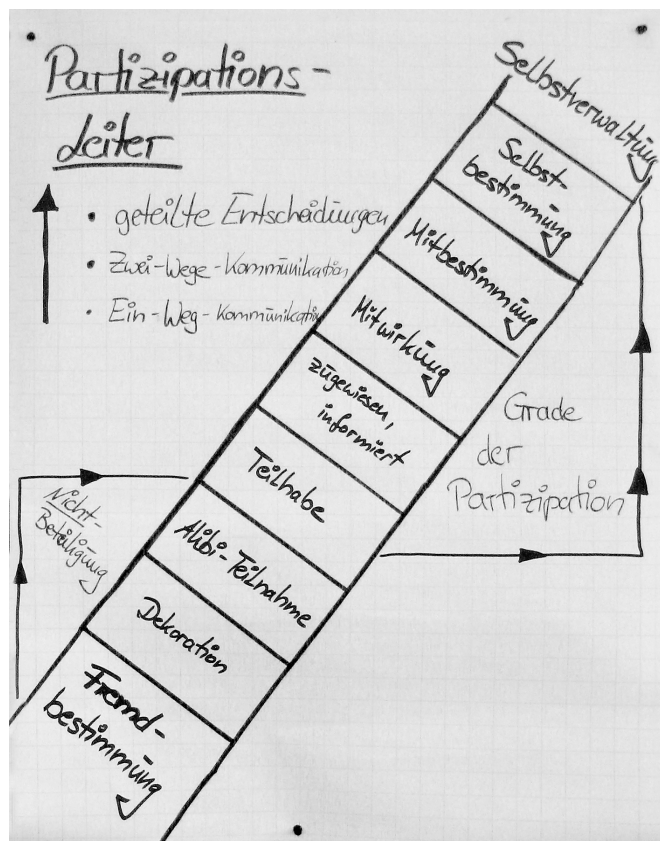 Partizipations-
Leiter
• geteilte Entscheidungen
• Zwei-Wege-Kommunikation
• Ein-Weg-Kommunikation
Selbstverwaltung
Selbst-
bestimmung
Mitbestimmung
Mitwirkung
zugewiesen,
informiert
Teilhabe
Alibi-Teilnahme
Dekoration
Fremd-
bestimmung
Grade
der
Partizipation
Nicht-
Beteiligung